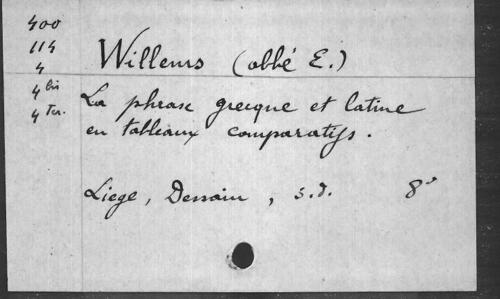 400
114
4
4 bis
4 ter.
Willems (abbé E.)
La phrase grecque et latine
en tableaux comparatifs.
Liege, Dessain, s.d. 8°